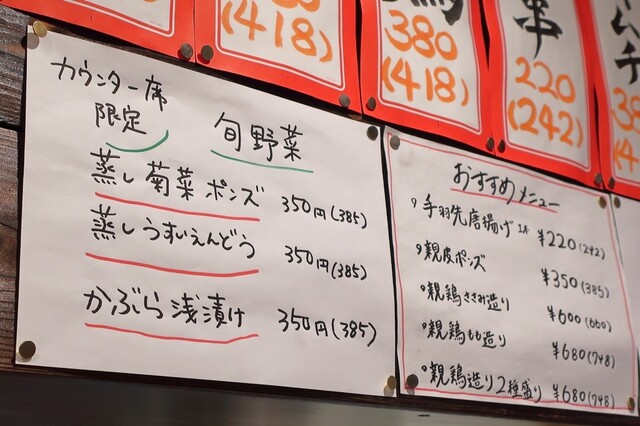 (418)
380
(418)
串
220
(242)
カウンター席
限定
旬野菜
蒸し菊菜ポンズ 350円(385)
蒸しうすいえんどう 350円(385)
かぶら浅漬け 350円(385)
おすすめメニュー
手羽先唐揚げ 1本 ¥220(242)
親皮ポンズ ¥350(385)
親鶏ささみ造り ¥600(660)
親鶏もも造り ¥680(748)
親鶏造り2種盛り ¥680(748)